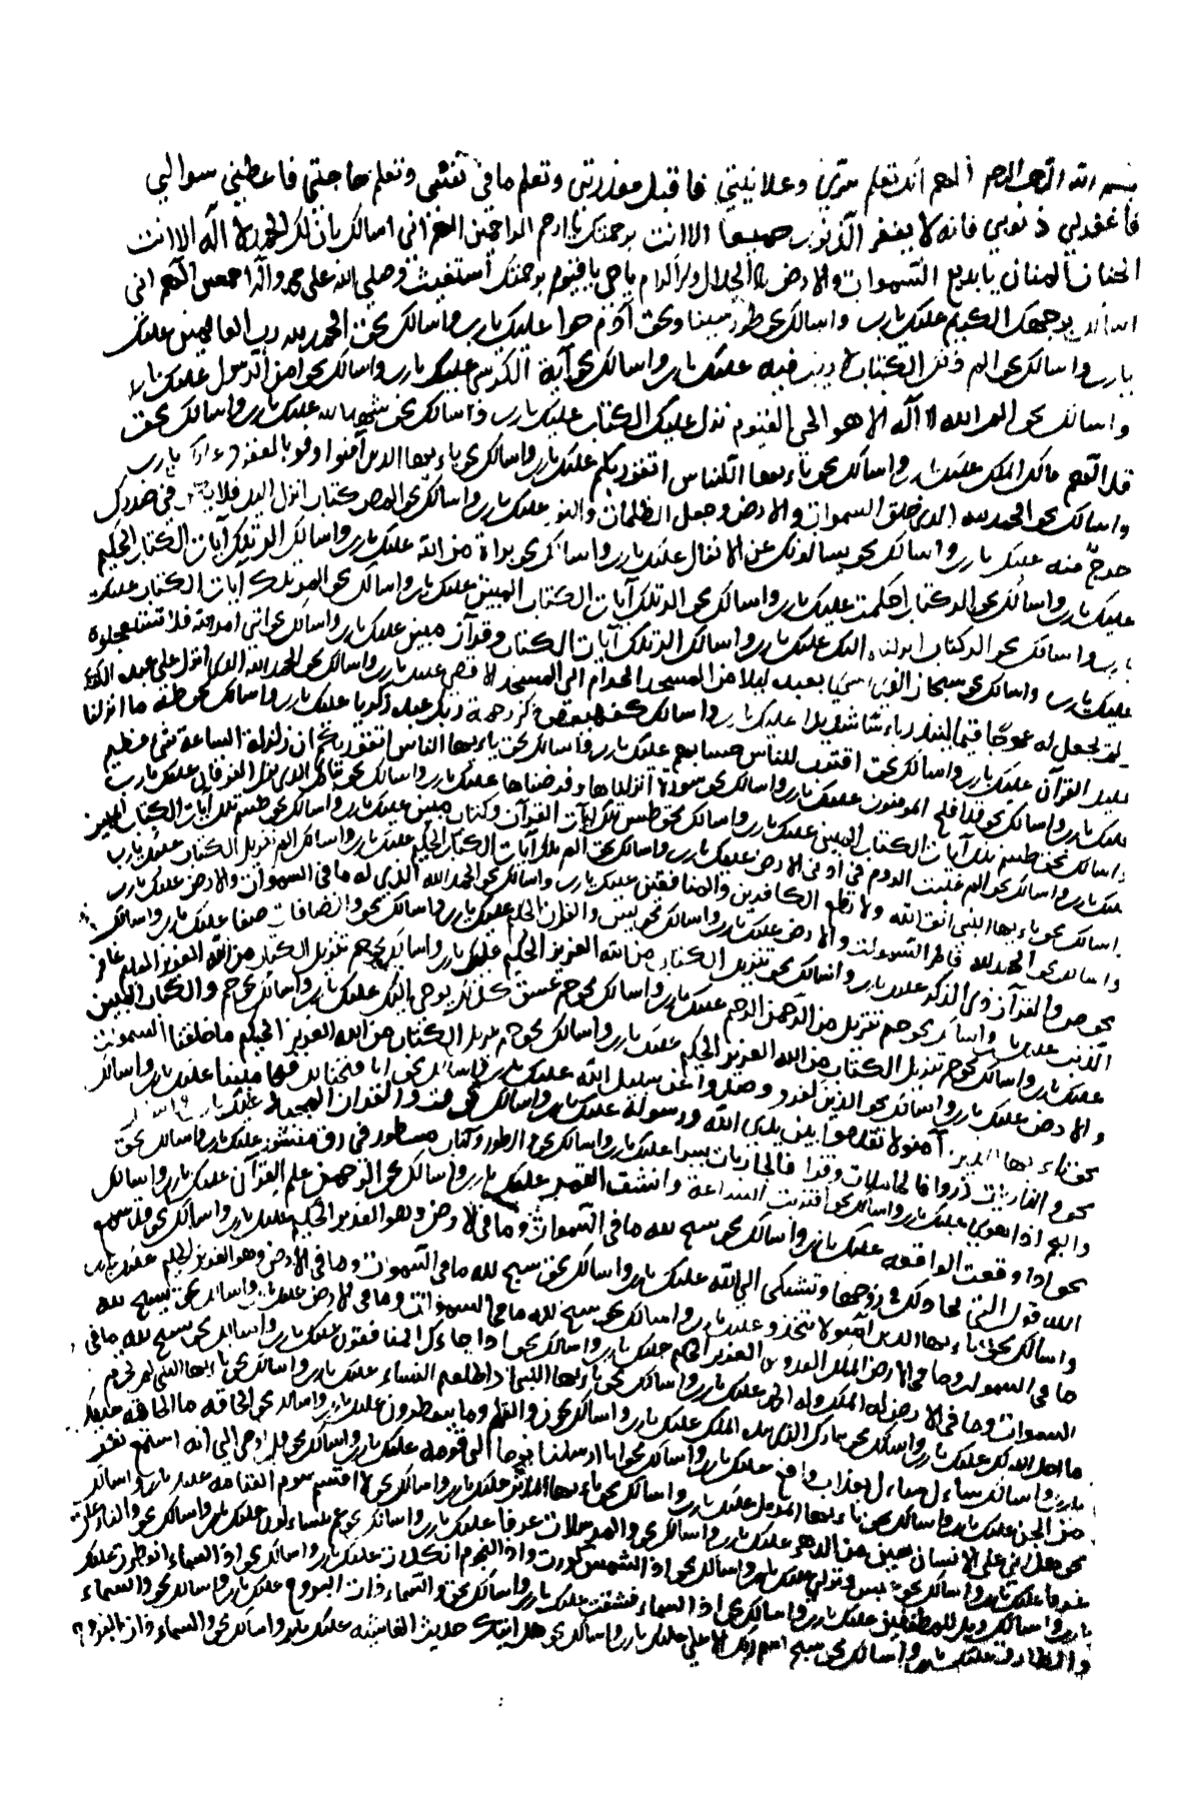 بسم الله الرحمن الرحيم اللهم انك تعلم سرّي وعلانيتي فاقبل معذرتي وتعلم ما في نفسي وتعلم حاجتي فاعطني سوالي
فاغفر لي ذنوبي فانه لا يغفر الذنوب جميعا الا انت برحمتك يا ارحم الراحمين اللهم اني اسالك بان لك الحمد لا اله الا انت
الحنان المنان يا بديع السموات والارض يا ذا الجلال والاكرام يا حي يا قيوم برحمتك استغيث وصلى الله على محمد واله اجمعين اللهم اني
اسالك بوجهك الكريم عليك يارب واسالك بحق طور سينا وبحق ادم حوا عليك يارب واسالك بحق الحمد لله رب العالمين عليك
يارب واسالك بحق الم ذلك الكتاب لا ريب فيه عليك يارب واسالك بحق آية الكرسي عليك يارب واسالك بحق امن الرسول عليك
واسالك بحق الم الله لا اله الا هو الحي القيوم نزل عليك الكتاب عليك يارب واسالك بحق شهد الله عليك يارب واسالك بحق
قل اللهم مالك الملك عليك يارب واسالك بحق ياءيها الناس اتقوا ربكم عليك يارب واسالك بحق ياءيها الذين آمنوا اوفوا بالعقود يارب
واسالك بحق الحمد لله الذي خلق السموات والارض وجعل الظلمات والنور عليك يارب واسالك بحق المص كتاب انزل اليك فلا في صدرك
حرج منه عليك يارب واسالك بحق يسالونك عن الانفال عليك يارب واسالك بحق براة من الله عليك يارب واسالك الر تلك آيات الكتاب الحكيم
عليك يارب واسالك بحق الر كتاب احكمت عليك يارب واسالك بحق الر تلك آيات الكتاب المبين عليك يارب واسالك بحق المر تلك آيات الكتاب عليك
يارب واسالك بحق الر كتاب انزلناه اليك عليك يارب واسالك الر تلك آيات الكتاب وقرآن مبين عليك يارب واسالك بحق اتى امر الله فلا تستعجلوه
عليك يارب واسالك بحق سبحان الذي اسرى بعبده ليلا من المسجد الحرام الى المسجد الاقصى عليك يارب واسالك بحق الحمد لله الذي انزل على عبده
لم يجعل له عوجا قيما لينذر باسا شديدا عليك يارب واسالك كهيعص ذكر رحمة ربك عبده زكريا عليك يارب واسالك بحق طه ما انزلنا
عليك القرآن عليك يارب واسالك بحق اقترب للناس حسابهم عليك يارب واسالك بحق ياءيها الناس اتقوا ربكم ان زلزلة الساعة شيء عظيم
عليك يارب واسالك بحق قد افلح المومنون عليك يارب واسالك بحق سورة انزلناها وفرضناها عليك يارب واسالك بحق تبارك الذي نزل الفرقان عليك يارب
واسالك بحق طسم تلك آيات الكتاب المبين عليك يارب واسالك بحق طس تلك آيات القرآن وكتاب مبين عليك يارب واسالك بحق طسم تلك آيات الكتاب المبين
عليك يارب واسالك بحق الم غلبت الروم في ادنى الارض عليك يارب واسالك بحق الم تلك آيات الكتاب الحكيم عليك يارب واسالك الم تنزيل الكتاب عليك يارب
اسالك بحق ياءيها النبي اتق الله ولا تطع الكافرين والمنافقين عليك يارب واسالك بحق الحمد لله الذي له ما في السموات والارض عليك يارب
واسالك بحق الحمد لله فاطر السموات والارض عليك يارب واسالك بحق يس والقرآن الحكيم عليك يارب واسالك بحق والصافات صفا عليك يارب واسالك
بحق ص والقرآن ذي الذكر عليك يارب واسالك بحق تنزيل الكتاب من الله العزيز الحكيم عليك يارب واسالك بحق حم تنزيل الكتاب من الله العزيز العليم غافر
الذنب عليك يارب واسالك بحق حم تنزيل من الرحمن الرحيم عليك يارب واسالك بحق حم عسق كذلك يوحي اليك عليك يارب واسالك بحق حم والكتاب المبين
عليك يارب واسالك بحق حم تنزيل الكتاب من الله العزيز الحكيم عليك يارب واسالك بحق حم تنزيل الكتاب من الله العزيز الحكيم ما خلقنا السموات
والارض عليك يارب واسالك بحق الذين كفروا وصدوا عن سبيل الله عليك يارب واسالك بحق انا فتحنا لك فتحا مبينا عليك يارب واسالك
بحق ياءيها الذين آمنوا لا تقدموا بين يدي الله ورسوله عليك يارب واسالك بحق ق والقرآن المجيد عليك يارب
بحق والذاريات ذروا فالحاملات وقرا فالجاريات يسرا عليك يارب واسالك بحق والطور وكتاب مسطور في رق منشور عليك يارب واسالك بحق
والنجم اذا هوى عليك يارب واسالك بحق اقتربت الساعة وانشق القمر عليك يارب واسالك بحق الرحمن علم القرآن عليك يارب واسالك
بحق اذا وقعت الواقعه عليك يارب واسالك بحق سبح لله ما في السموات وما في الارض وهو العزيز الحكيم عليك يارب واسالك بحق قد سمع
الله قول التي تجادلك في زوجها وتشتكي الى الله عليك يارب واسالك بحق سبح لله ما في السموات وما في الارض وهو العزيز الحكيم عليك يارب
واسالك بحق ياءيها الذين آمنوا لا تتخذوا عليك يارب واسالك بحق سبح لله ما في السموات وما في الارض عليك يارب واسالك بحق يسبح لله
ما في السموات وما في الارض الملك القدوس العزيز الحكيم عليك يارب واسالك بحق اذا جاءك المنافقون عليك يارب واسالك بحق يسبح لله ما في
السموات وما في الارض له الملك وله الحمد عليك يارب واسالك بحق ياءيها النبي اذا طلقتم النساء عليك يارب واسالك بحق ياءيها النبي لم تحرم
ما احل الله لك عليك يارب واسالك بحق تبارك الذي بيده الملك عليك يارب واسالك بحق ن والقلم وما يسطرون عليك يارب واسالك بحق الحاقه ما الحاقه عليك
يارب واسالك سأل سائل بعذاب واقع عليك يارب واسالك بحق انا ارسلنا نوحا الى قومه عليك يارب واسالك بحق قل اوحي الي انه استمع نفر
من الجن عليك يارب واسالك بحق ياءيها المزمل عليك يارب واسالك بحق ياءيها المدثر عليك يارب واسالك بحق لا اقسم بيوم القيامه عليك يارب واسالك
بحق هل اتى على الانسان حين من الدهر عليك يارب واسالك بحق والمرسلات عرفا عليك يارب واسالك بحق عم يتساءلون عليك يارب واسالك بحق والنازعات
غرقا عليك يارب واسالك بحق عبس وتولى عليك يارب واسالك بحق اذا الشمس كورت واذا النجوم انكدرت عليك يارب واسالك بحق اذا السماء انفطرت عليك
يارب واسالك ويل للمطففين عليك يارب واسالك بحق اذا السماء انشقت عليك يارب واسالك بحق والسماء ذات البروج عليك يارب واسالك بحق والسماء
والطارق عليك يارب واسالك بحق سبح اسم ربك الاعلى عليك يارب واسالك بحق هل اتيك حديث الغاشيه عليك يارب واسالك بحق والسماء ذات البروج